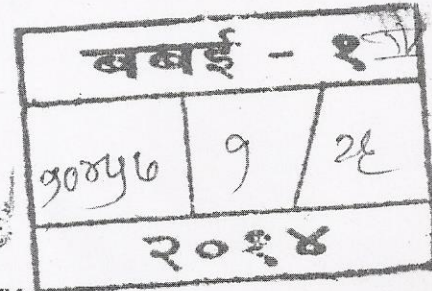 बबई - १
१०४५७ १ / २६
२०१४